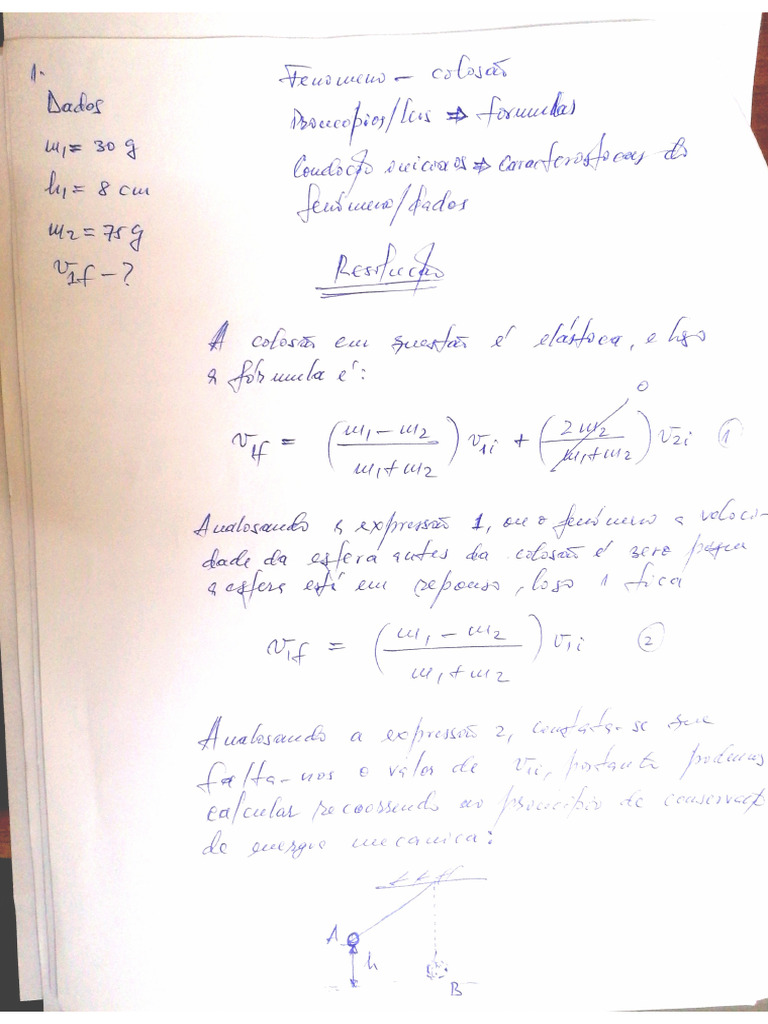 1.
Dados
m₁ = 30 g
h₁ = 8 cm
m₂ = 75 g
v₁f - ?
Fenómeno - colosão
Proncopios/leis ⇒ formulas
Condoção oniciais ⇒ caracterostocas do
fenómeno/dados
Resolução
A colosão em questão é elástoca, e logo
a fórmula é:
v₁f = ((m₁ - m₂)/(m₁ + m₂)) v₁i + ((2m₂)/(m₁ + m₂)) v₂i ①
0
Analosando a expressão 1, ou o fenómeno a veloci-
dade da esfera antes da colosão é zero porque
a esfera está em repouso, logo 1 fica
v₁f = ((m₁ - m₂)/(m₁ + m₂)) v₁i ②
Analosando a expressão 2, constata-se que
falta-nos o valor de v₁i, portanto podemos
calcular recorrendo ao princípio de conservação
de energia mecanica:
A
h
B